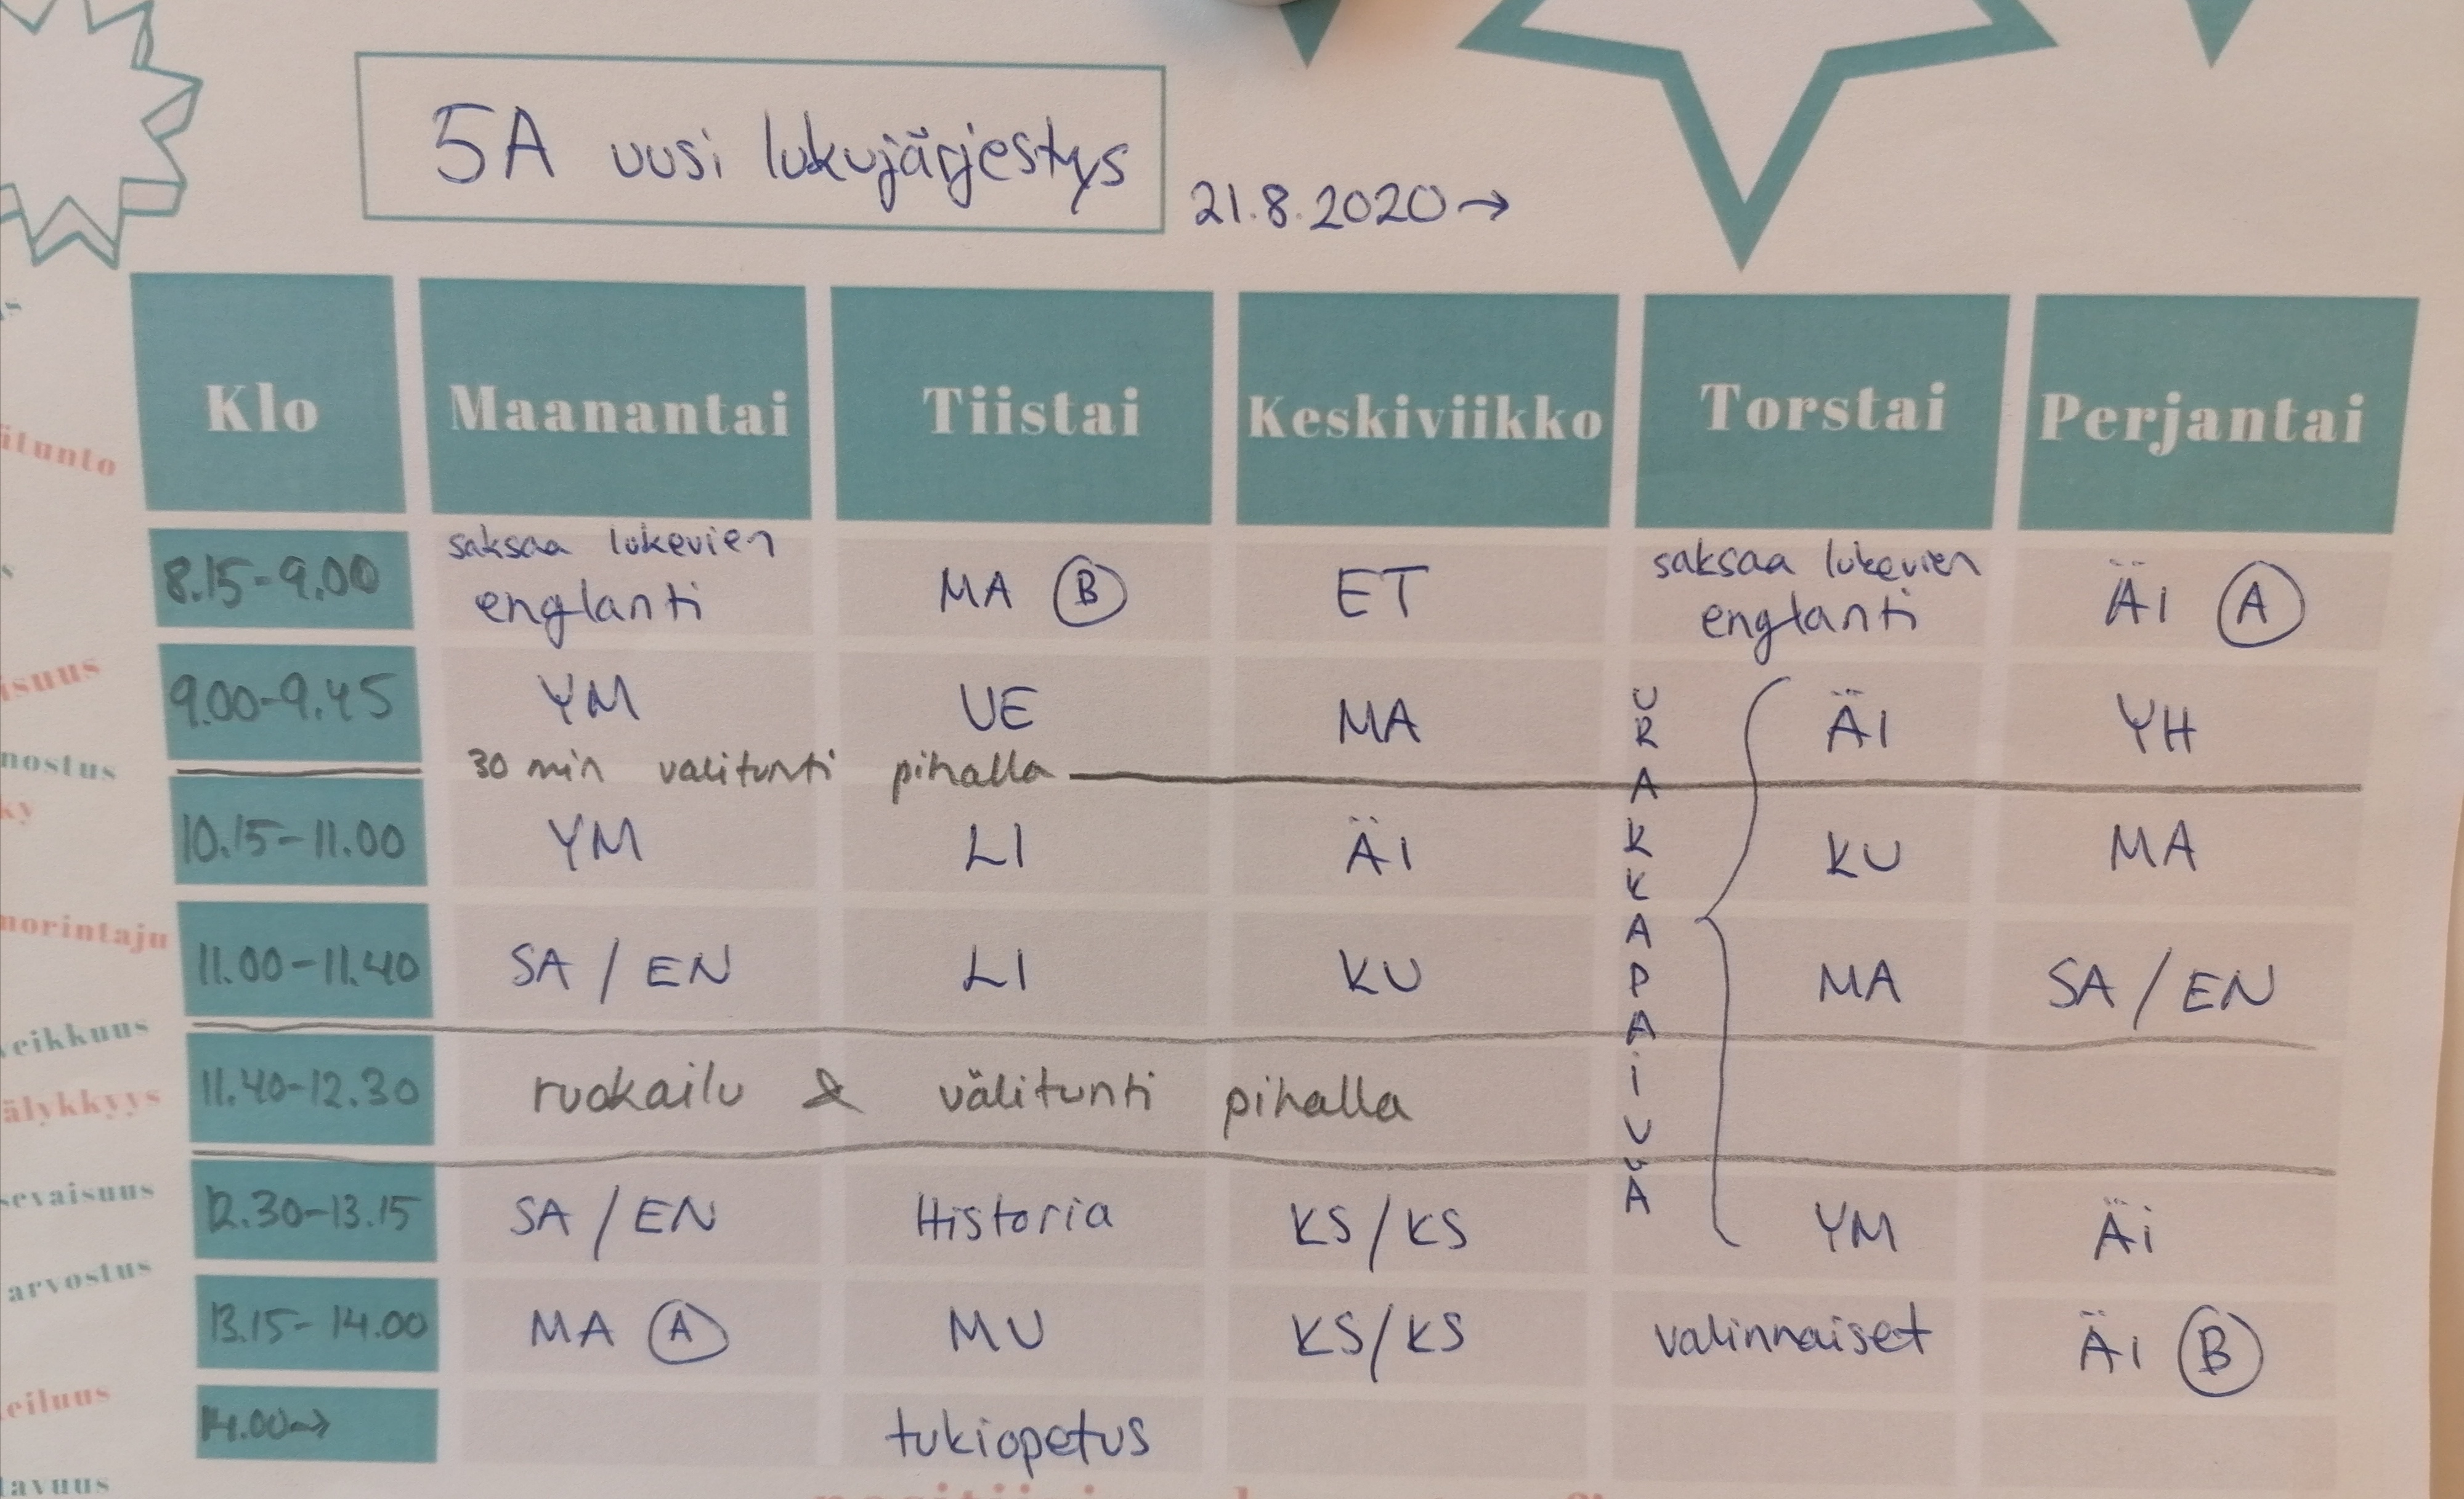 5A uusi lukujärjestys
21.8.2020→
Klo Maanantai Tiistai Keskiviikko Torstai Perjantai
8.15-9.00 saksaa lukevien englanti MA B ET saksaa lukevien englanti Äi A
9.00-9.45 YM UE MA ÄI YH
30 min valitunti pihalla
10.15-11.00 YM LI ÄI KU MA
11.00-11.40 SA / EN LI KU MA SA / EN
URAKKAPAiVÄ
11.40-12.30 ruokailu & välitunti pihalla
12.30-13.15 SA / EN Historia KS/KS YM Äi
13.15-14.00 MA A MU KS/KS valinnaiset Äi B
14.00→ tukiopetus
ätunto
isuus
nostus
ky
norintaju
veikkuus
älykkyys
sevaisuus
arvostus
eiluus
tavuus